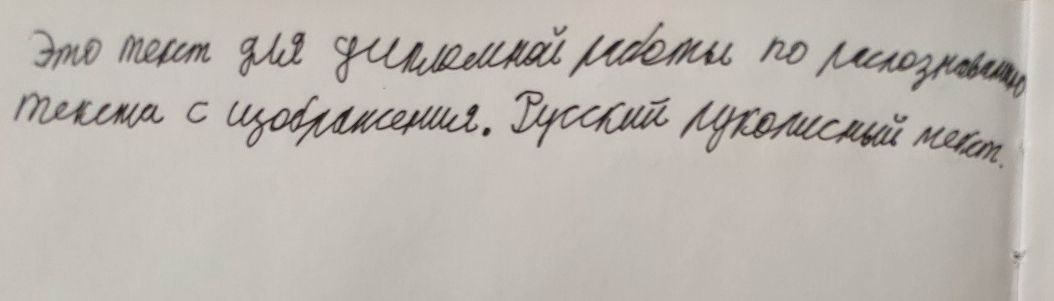 Это текст для дипломной работы по распознаванию
текста с изображения. Русский рукописный текст.